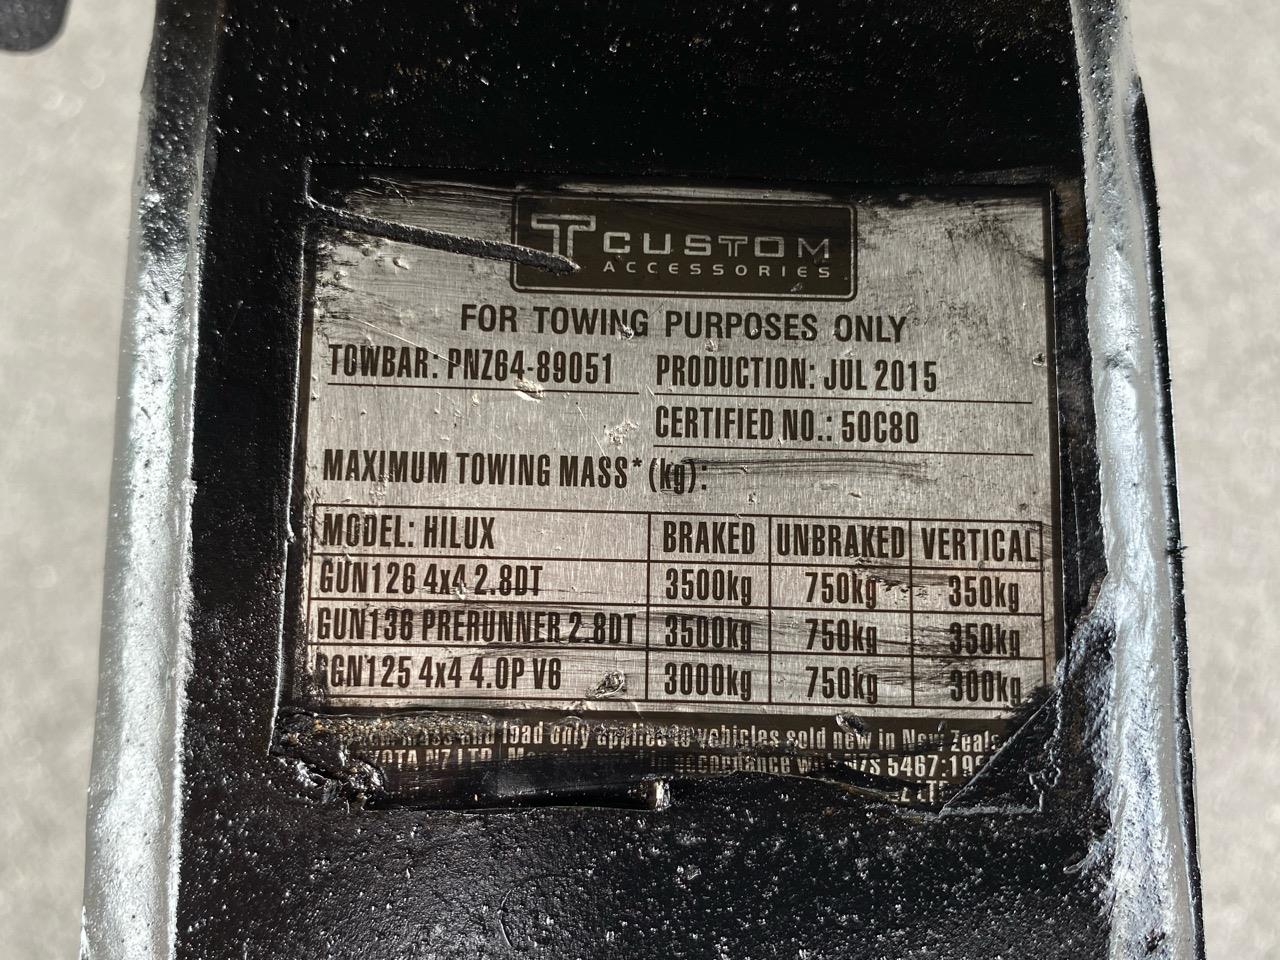 T CUSTOM
ACCESSORIES
FOR TOWING PURPOSES ONLY
TOWBAR: PNZ64-89051
PRODUCTION: JUL 2015
CERTIFIED NO.: 50C80
MAXIMUM TOWING MASS* (kg):
MODEL: HILUX BRAKED UNBRAKED VERTICAL
GUN126 4x4 2.8DT 3500kg 750kg 350kg
GUN136 PRERUNNER 2.8DT 3500kg 750kg 350kg
GGN125 4x4 4.0P V6 3000kg 750kg 300kg
and load only applies to vehicles sold new in New
NZ LTD. in accordance with NZS 5467:
LTD